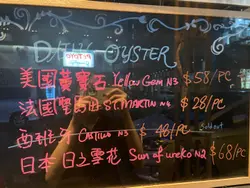 DAILY OYSTER
美國黃寶石 Yellow Gem N3 $58/PC
法國聖馬田 ST.MARTIN N4 $28/PC
西班牙 Castillo N3 $48/PC Sold out
日本 日之雪花 Sun of uneko N2 $68/PC